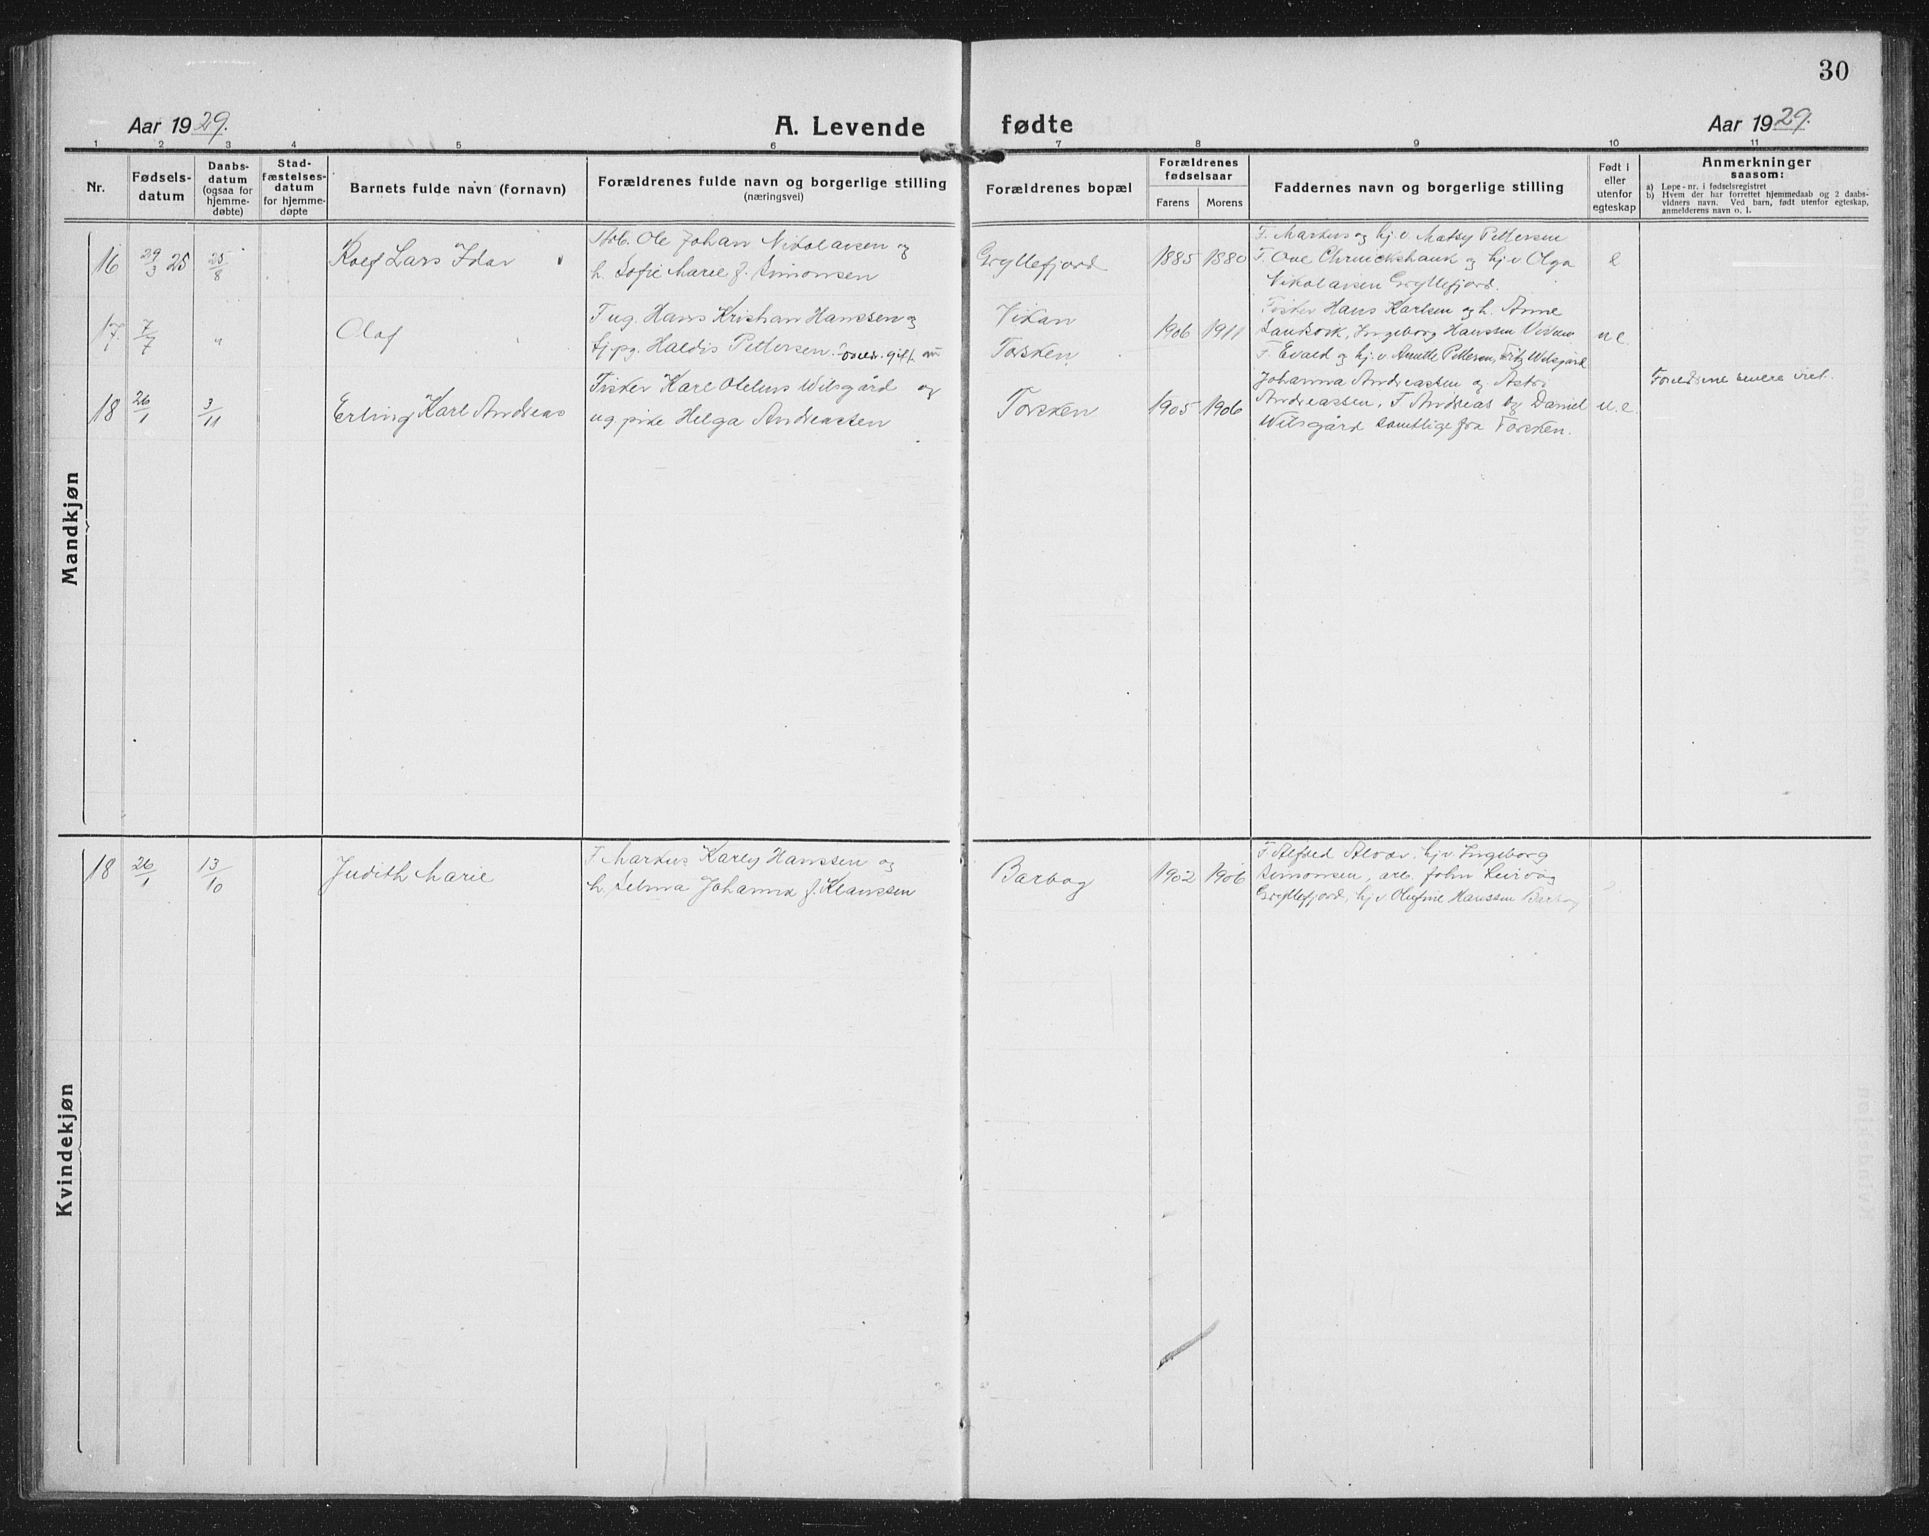 30
Aar 1929.
A. Levende fødte
Aar 1929.
1 2 3 4 5 6 7 8 9 10 11
Nr.
Fødsels-
datum
Daabs-
datum
(ogsaa for
hjemme-
døbte)
Stad-
fæstelses-
datum
for hjemme-
døpte
Barnets fulde navn (fornavn)
Forældrenes fulde navn og borgerlige stilling
(næringsvei)
Forældrenes bopæl
Forældrenes
fødselsaar
Farens Morens
Faddernes navn og borgerlige stilling
Født i
eller
utenfor
egteskap
Anmerkninger
saasom:
a) Løpe-nr. i fødselsregistret
b) Hvem der har forrettet hjemmedaab og 2 daabs-
vidners navn. Ved barn, født utenfor egteskap,
anmelderens navn o. l.
Mandkjøn
16 29/3 25 25/8 Rolf Lars Idar
Ole Johan Nikolaisen og
h. Sofie Marie f. Simonsen
Gryllefjord 1885 1880
F. Markus og hj.v. Matsy Pettersen
F. Ove Chruickshank og hj.v Olga
Nikolaisen Gryllefjord.
e
17 7/7 " Olaf
F ug. Hans Kristian Hanssen og
tj.pg. Haldis Pettersen.
Vikan
Torsken
1906 1911
Fisker Hans Karlsen og h. Anne
Sandvik, Ingeborg Hanssen Vikan
F. Evald og hj.v. Anette Pettersen, Fritz Wilsgård
u e
18 26/1 3/11 Erling Karl Andreas
Fisker Karl Oleluis Wilsgård og
ug pike Helga Andreassen
Torsken 1905 1906
Johanna Andreassen og Astor
Andreassen, F Andreas og Daniel
Wilsgård samtlige fra Torsken.
u. e.
Foreldrene senere viet.
Kvindekjøn
18 26/1 13/10 Judith Marie
F Markus Karly Hanssen og
h. Selma Johanna f. Klaussen
Barbog 1902 1906
F Alfred hj v. Ingeborg
Simonsen, arb. John Leirvåg
Gryllefjord, hj v. Olufine Hanssen Barbog